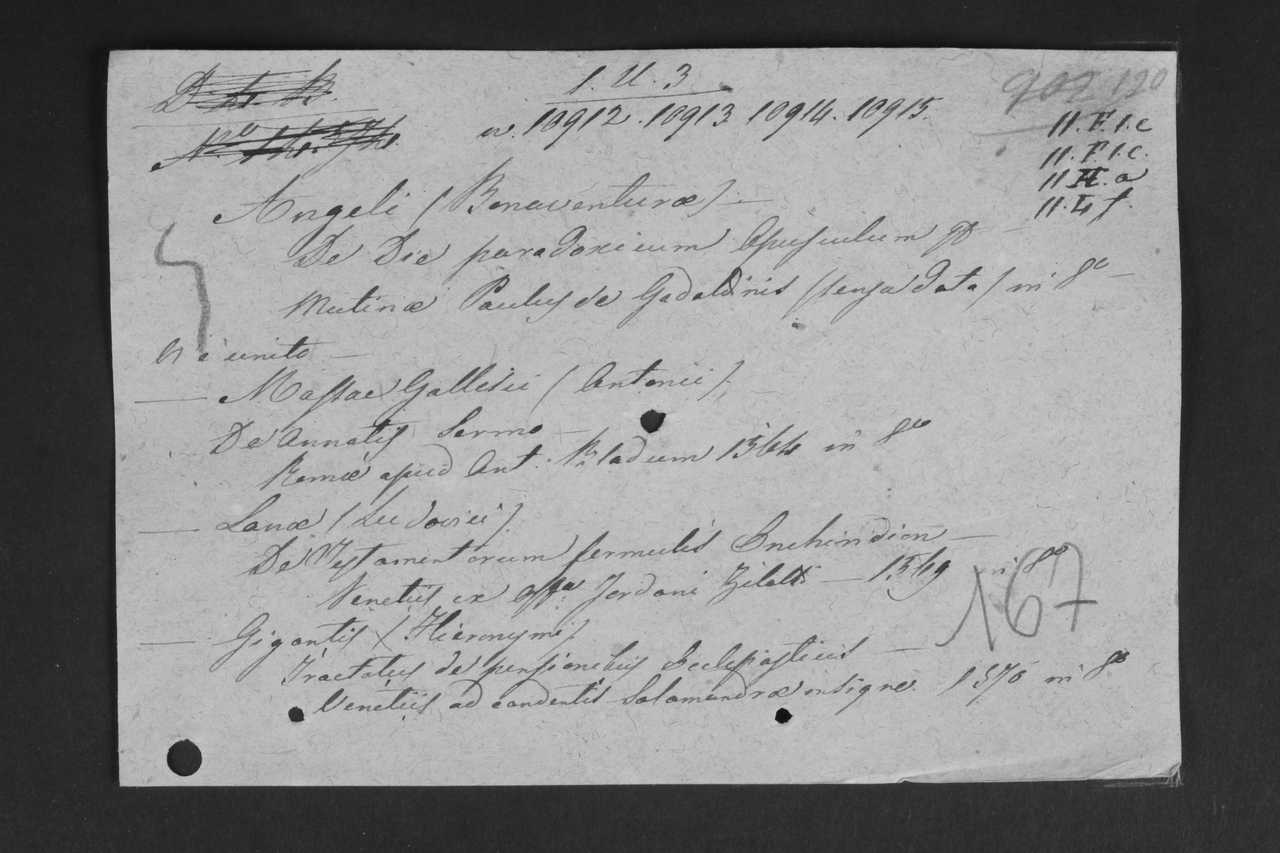 1. U. 3
n. 10912. 10913 10914. 10915.
902 120
11. F. 1. c
11. F. 1. c.
11 H. a
11. L f.
Angeli (Bonaventuræ) -
De Die paradoxicum Opusculum
Mutinæ Paulus de Gadaldinis (senza data) in 8o -
Vi è unito -
Massae Gallesii (Antonii)
De Annatis Sermo -
Romæ apud Ant. Bladum 1564 in 8o
Lanæ (Ludovici)
De Testamentorum formulis Enchiridion -
Venetiis ex offa Jordani Zileti - 1569 in 8o
167
Gigantis (Hieronymi)
Tractatus de pensionibus Ecclesiasticis -
Venetiis ad candentis Salamandræ insigne 1570 in 8o